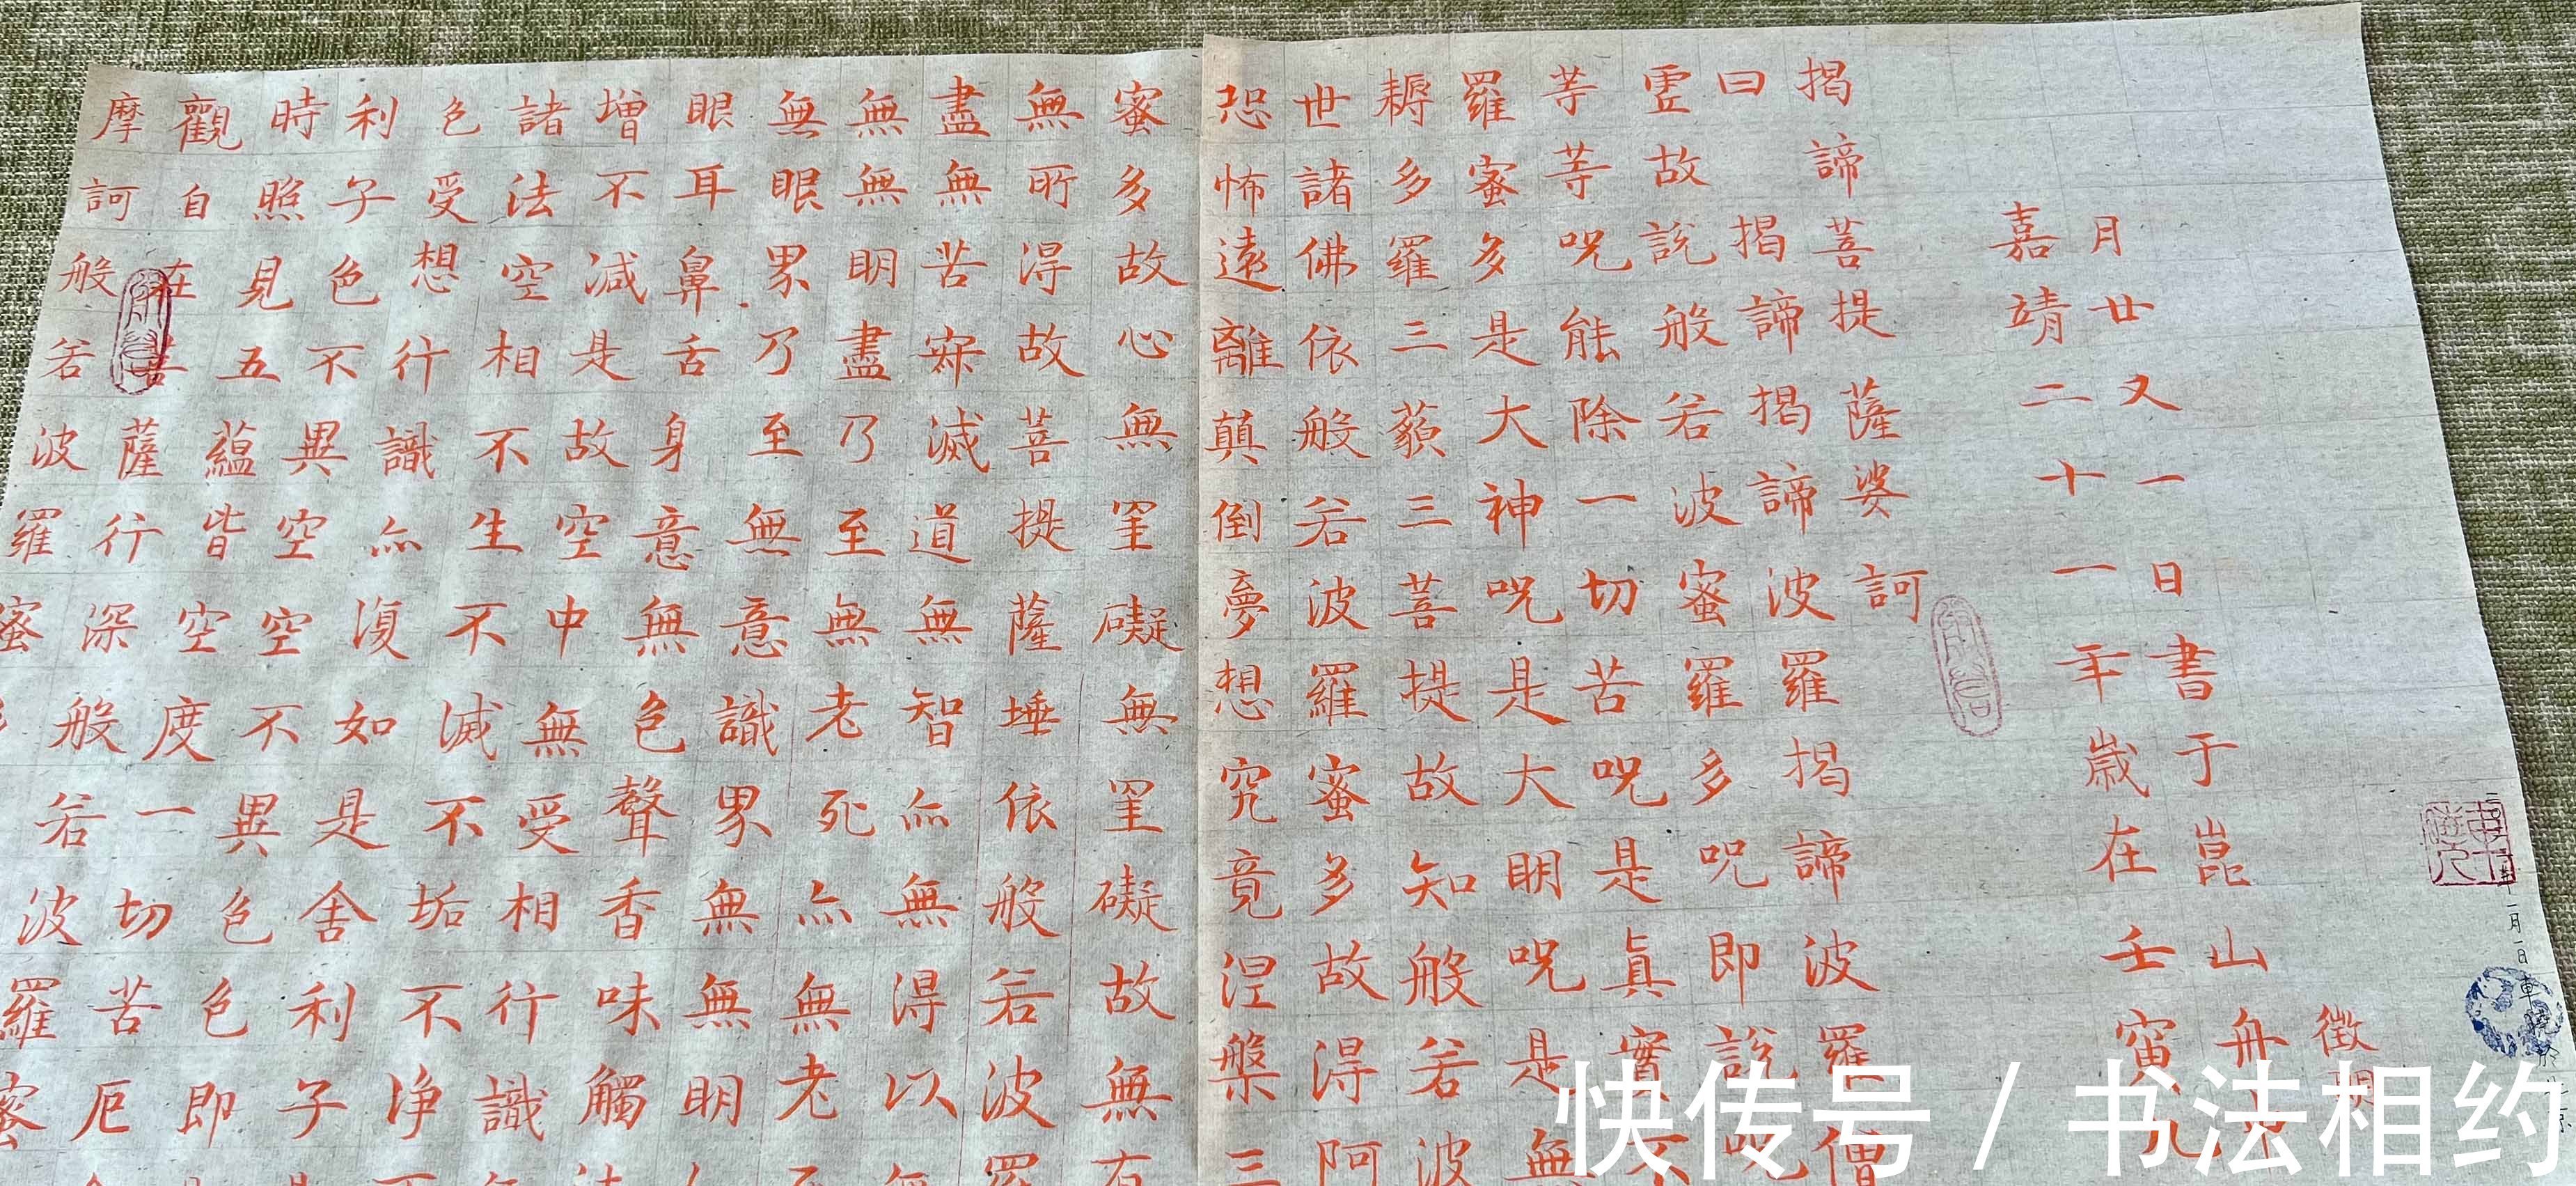 摩訶般若波羅蜜
觀自在菩薩行深般若波羅蜜
時照見五蘊皆空度一切苦厄
利子色不異空空不異色色即
色受想行識亦復如是舍利子
諸法空相不生不滅不垢不淨
增不減是故空中無受相行識
眼耳鼻舌身意無色聲香味觸
無眼界乃至無意識界無無明
無無明盡乃至無老死亦無老
盡無苦寂滅道無智亦無得以
無所得故菩提薩埵依般若波羅
蜜多故心無罣礙無罣礙故無有
恐怖遠離顛倒夢想究竟涅槃三
世諸佛依般若波羅蜜多故得阿
耨多羅三藐三菩提故知般若波
羅蜜多是大神呪是大明呪是無
等等呪能除一切苦呪是真實不
虛故說般若波羅蜜多呪即說呪
曰揭諦揭諦波羅揭諦波羅僧
揭諦菩提薩婆訶
嘉靖二十一年歲在壬寅九
月廿又一日書于崑山舟
徵明
快传号 / 书法相约